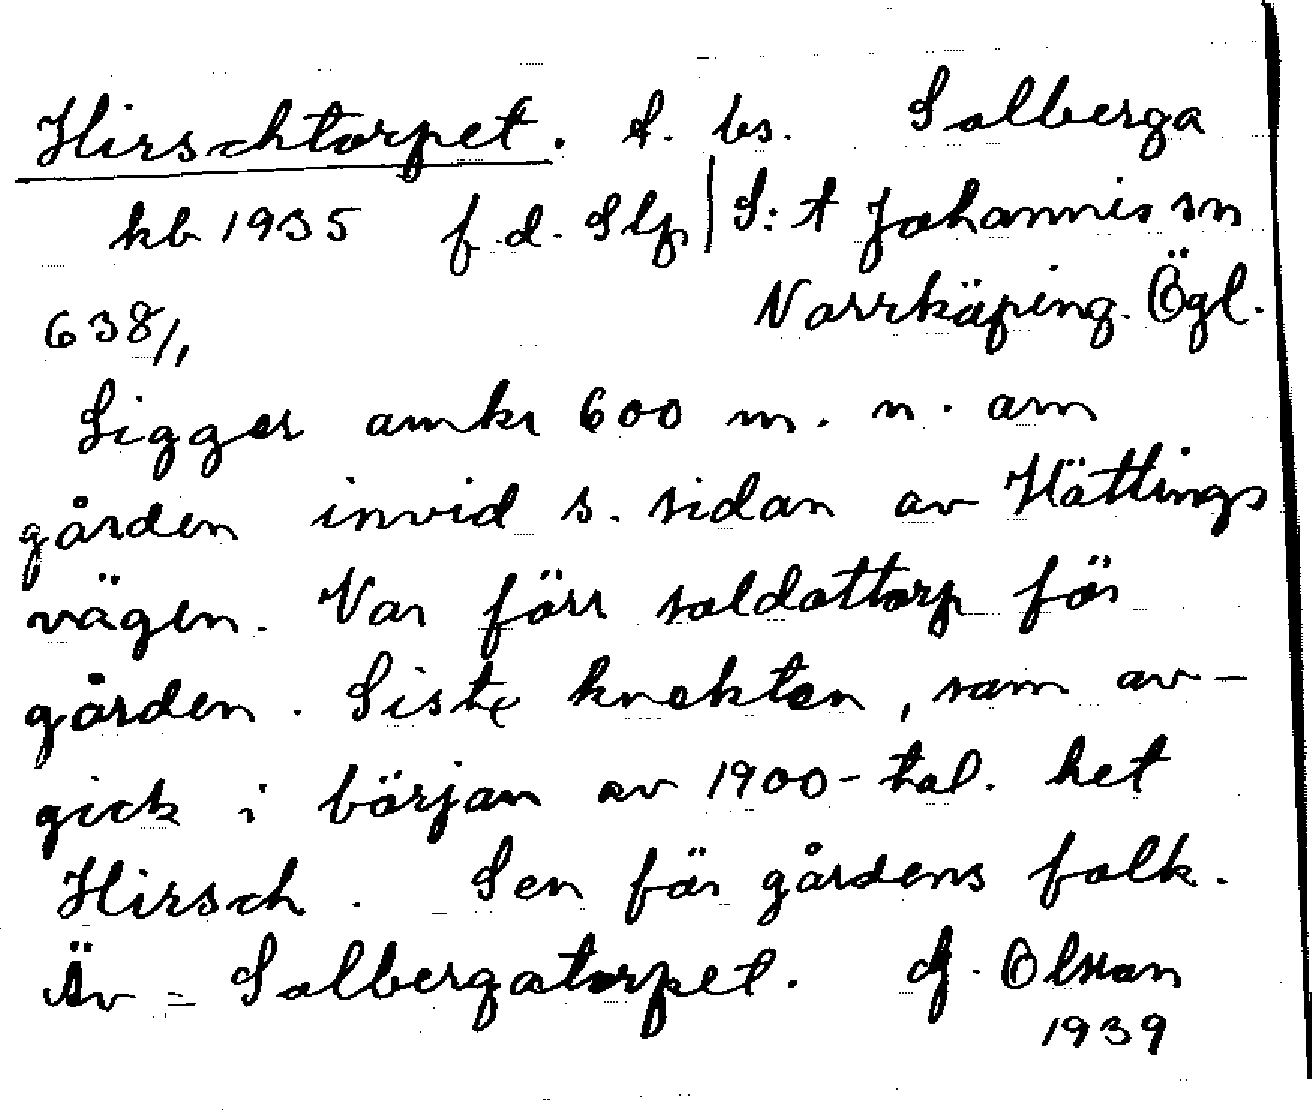 Hirschtorpet. t. bs. Solberga
kb 1935 f.d. Slp | S:t Johannis sn
638/1 Norrköping. Ögl.
Ligger omkr 600 m. n. om
gården invid s. sidan av Hättings
vägen. Var förr soldattorp för
gården. Siste knekten, som av-
gick i början av 1900-tal. het
Hirsch. Sen för gårdens folk.
Äv = Solbergatorpet. G. Olsson
1939